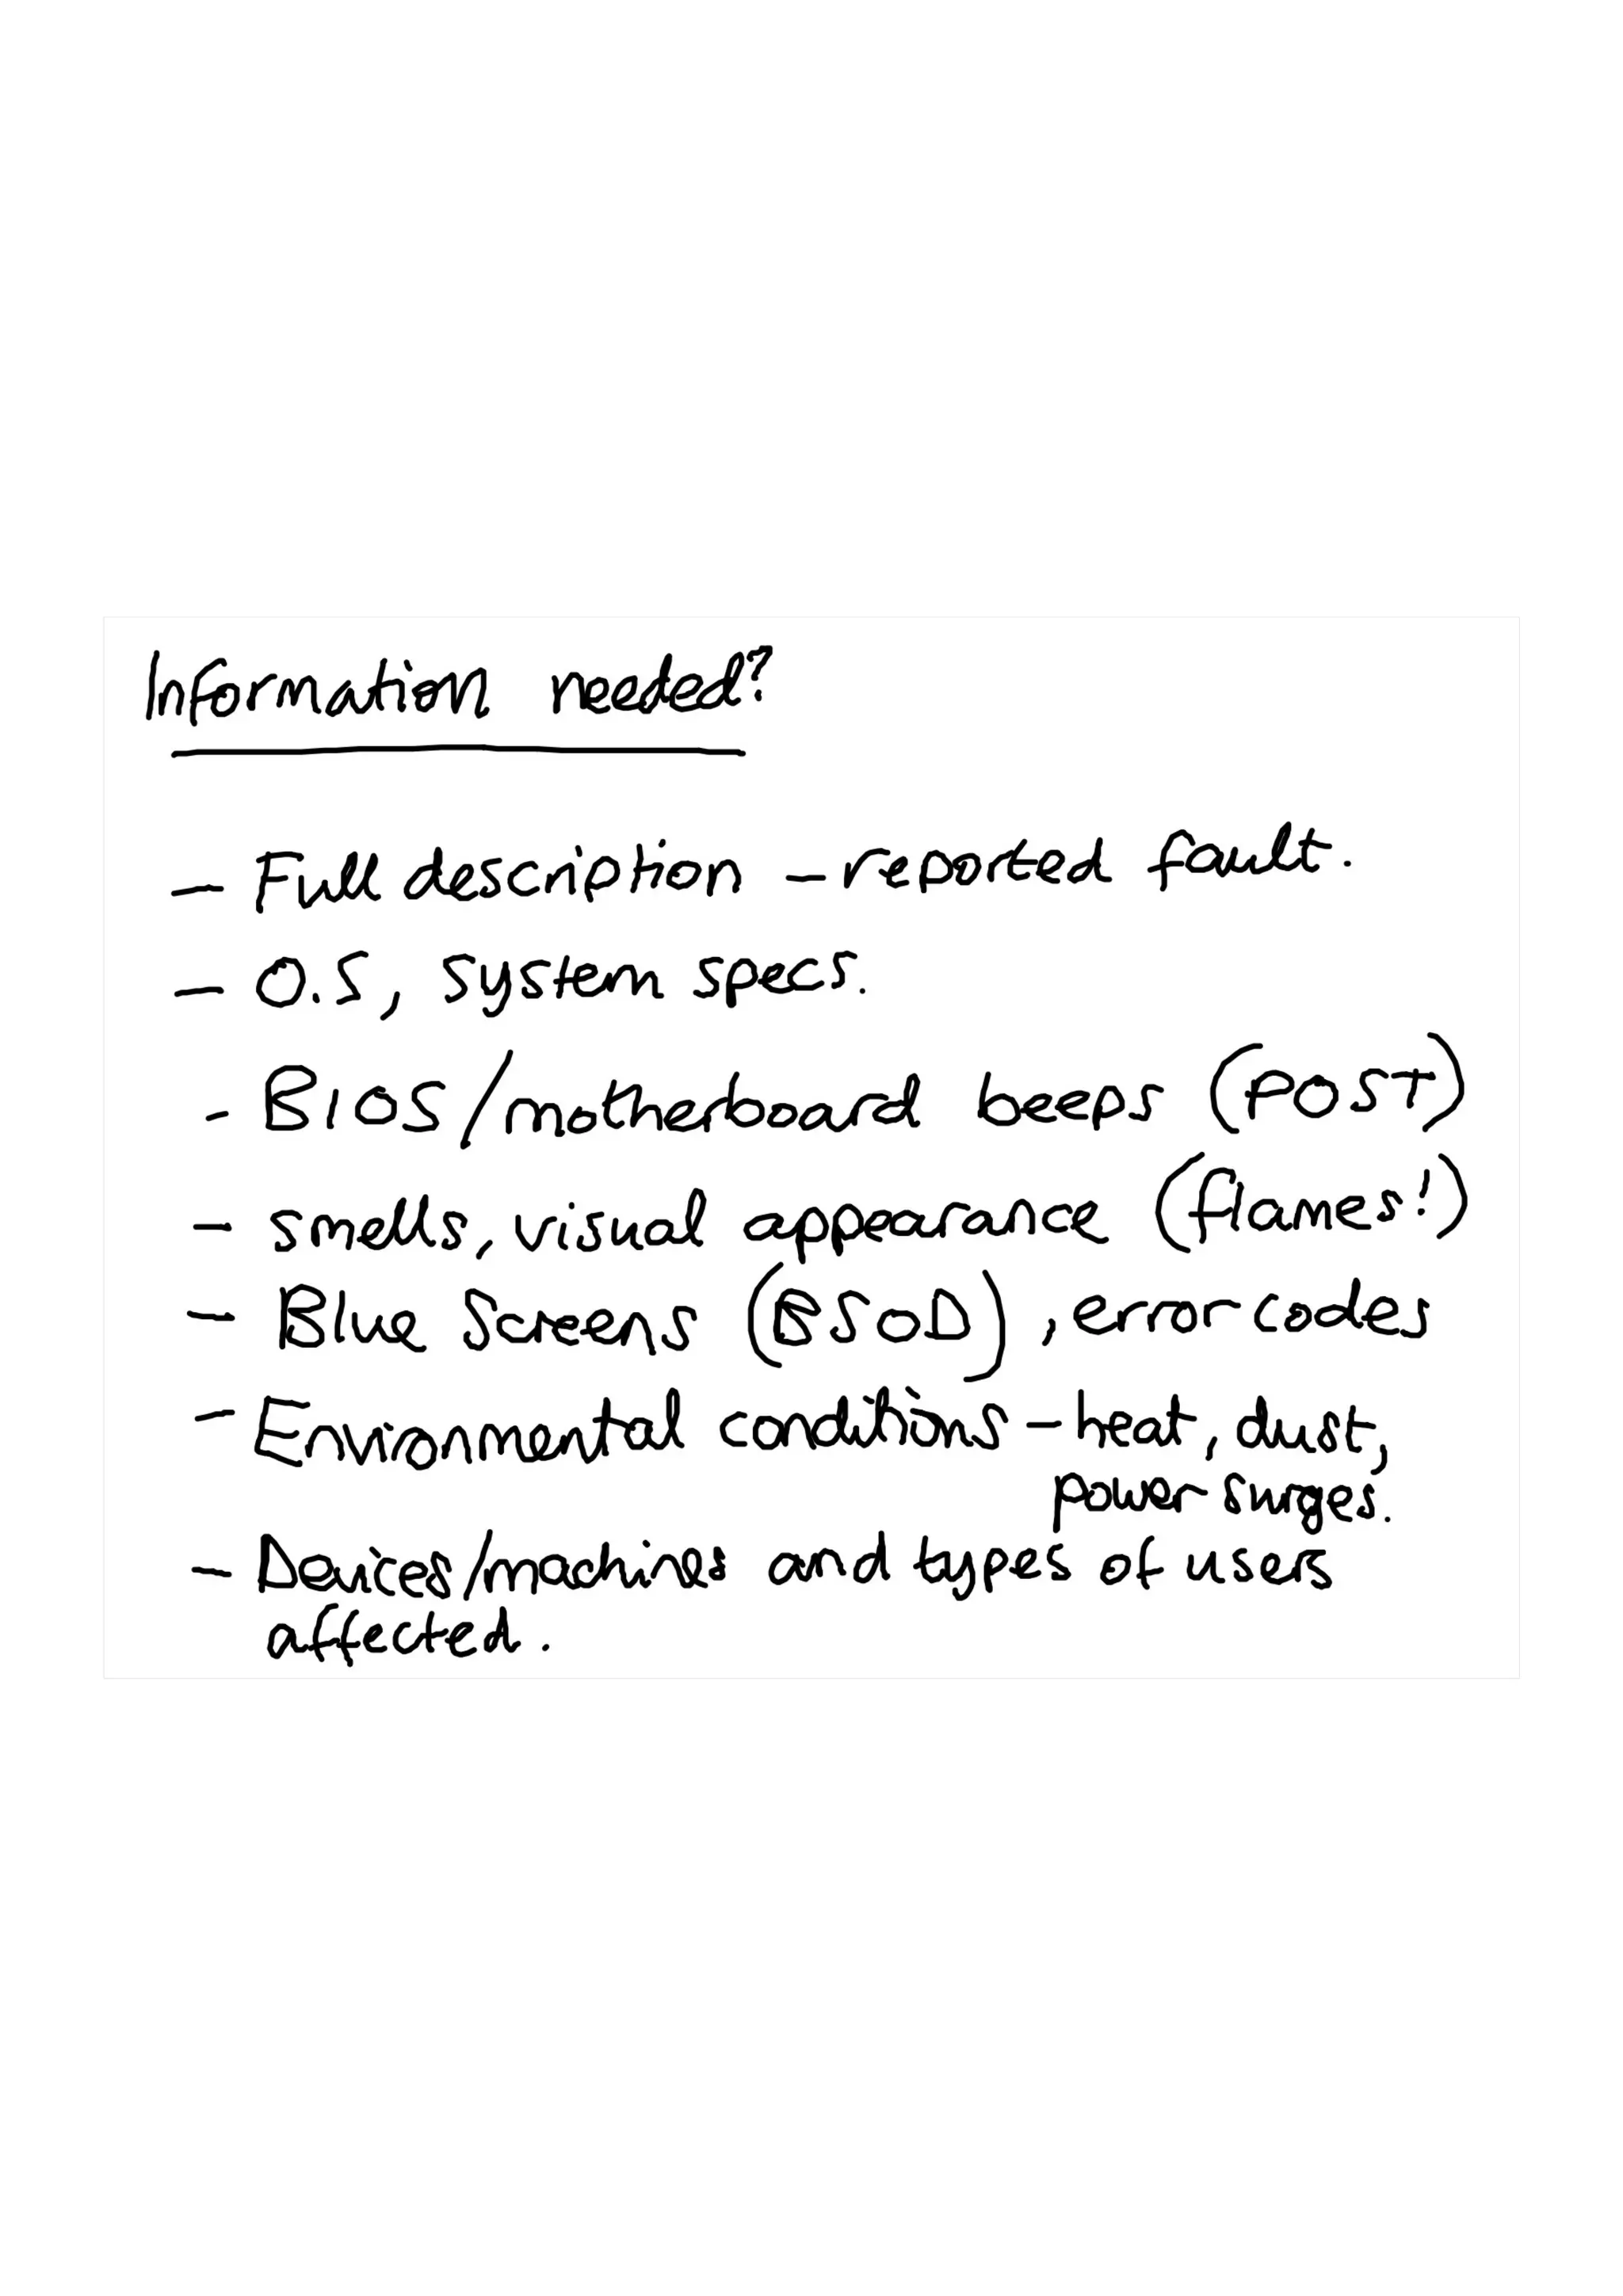 Information needed?
- Full description - reported fault.
- O.S, system specs.
- BIOS/motherboard beeps (POST)
- smells, visual appearance (flames!)
- Blue Screens (BSOD), error codes
- Environmental conditions - heat, dust,
power surges.
- Devices/machines and types of users
affected.